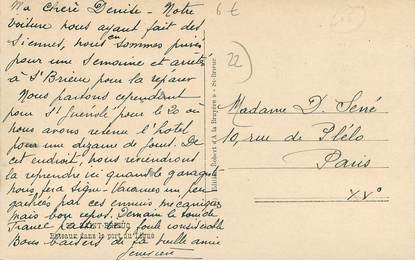 Ma chère Denise - Notre
voiture nous ayant fait des
siennes, nous en sommes privés
pour une semaine et arrêtés
à St Brieuc pour la réparer
Nous partons cependant
pour St Guénolé pour le 20 où
nous avons retenu l'hôtel
pour une dizaine de jours. De
cet endroit, nous reviendrons
la reprendre ici quand le garagiste
nous fera signe - Vacances un peu
gachées par ces ennuis mécaniques
mais bon repos. Demain le tour de
France passe ici, foule considérable
Bons baisers de ta vieille amie
6 €
22
Madame D. Serré
10, rue de Plélo
Paris
XVe
Bateaux dans le port du Légué